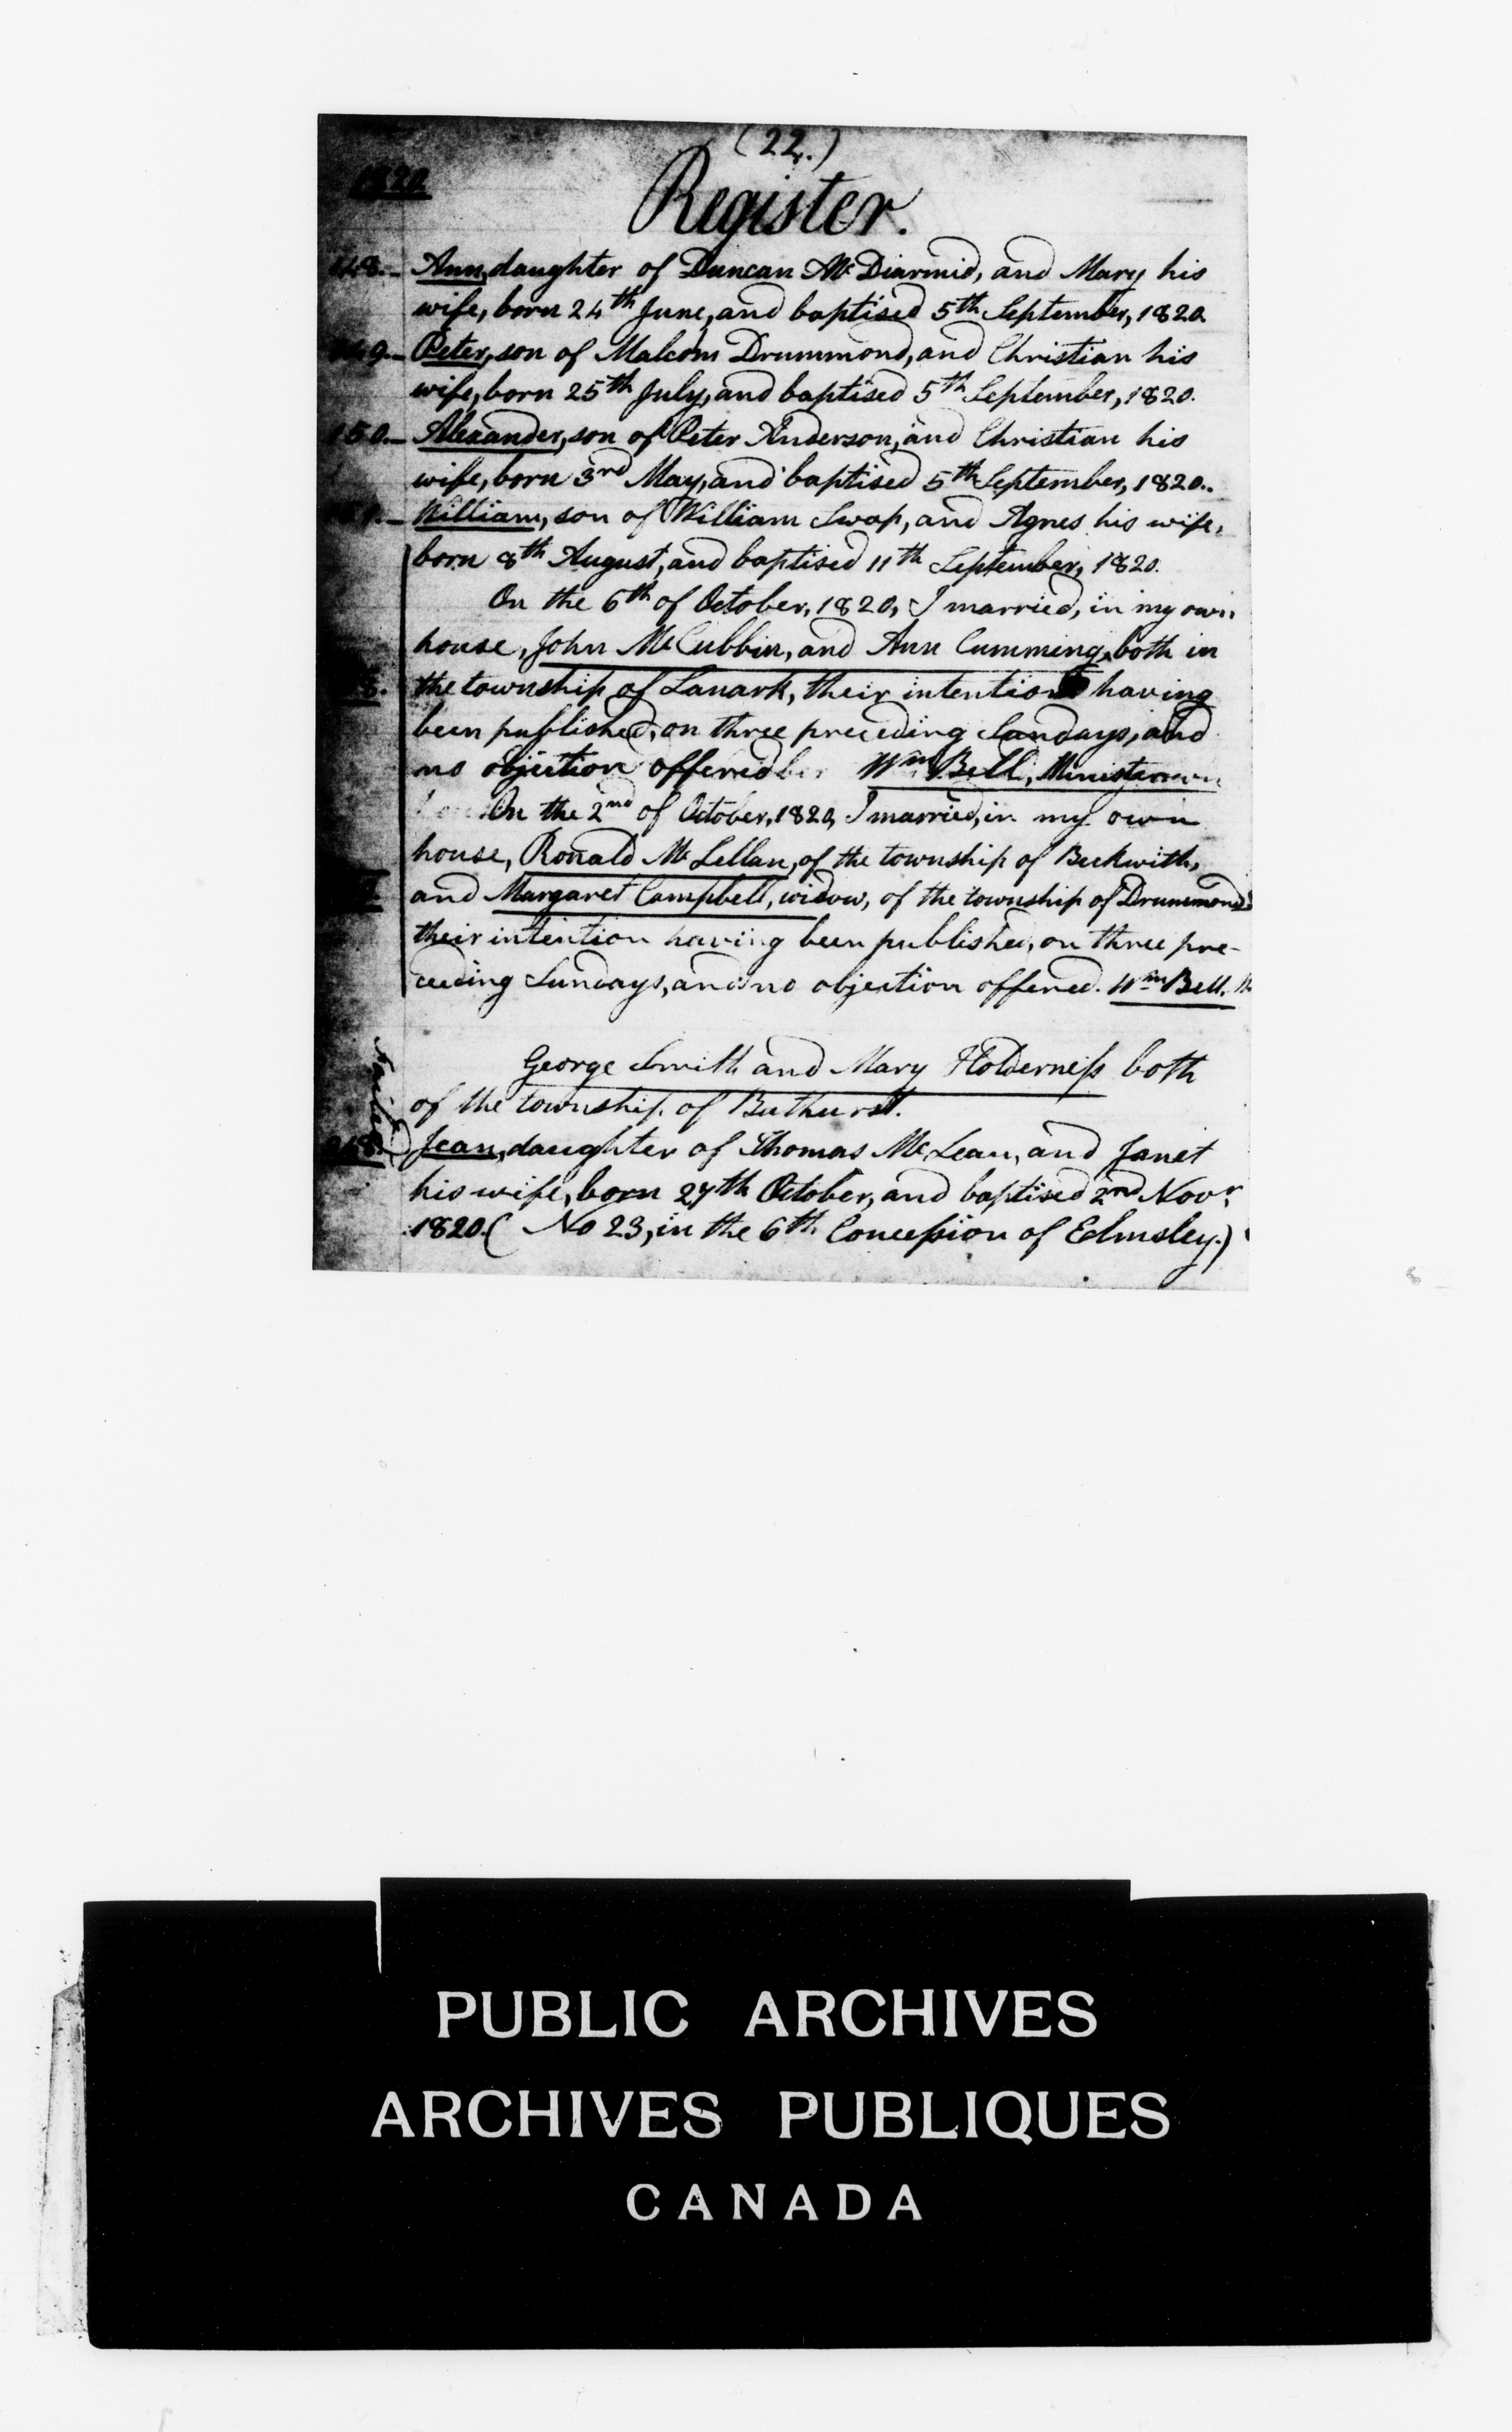 (22.)
1820
Register.
148.- Ann, daughter of Duncan Mc Diarmid, and Mary his
wife, born 24th June, and baptised 5th September, 1820.
149.- Peter, son of Malcom Drummond, and Christian his
wife, born 25th July, and baptised 5th September, 1820.
150.- Alexander, son of Peter Anderson, and Christian his
wife, born 3rd May, and baptised 5th September, 1820.
151.- William, son of William Swap, and Agnes his wife,
born 8th August, and baptised 11th September, 1820.
On the 6th of October, 1820, I married, in my own
house, John McCubbin, and Ann Cumming, both in
the township of Lanark, their intention having
been published, on three preceding Sundays, and
no objection offered Wm Bell, Minister
On the 2nd of October, 1820, I married, in my own
house, Ronald McLellan, of the township of Beckwith,
and Margaret Campbell, widow, of the township of Drummond
their intention having been published, on three pre-
ceeding Sundays, and no objection offered. Wm Bell.
George Smith and Mary Holderness both
of the township of Bathurst.
Jean, daughter of Thomas McLean, and Janet
his wife, born 27th October, and baptised 2nd Novr
1820. (No 23, in the 6th Concession of Elmsley.)
PUBLIC ARCHIVES
ARCHIVES PUBLIQUES
CANADA